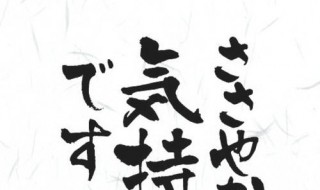 ささやか
気持
です